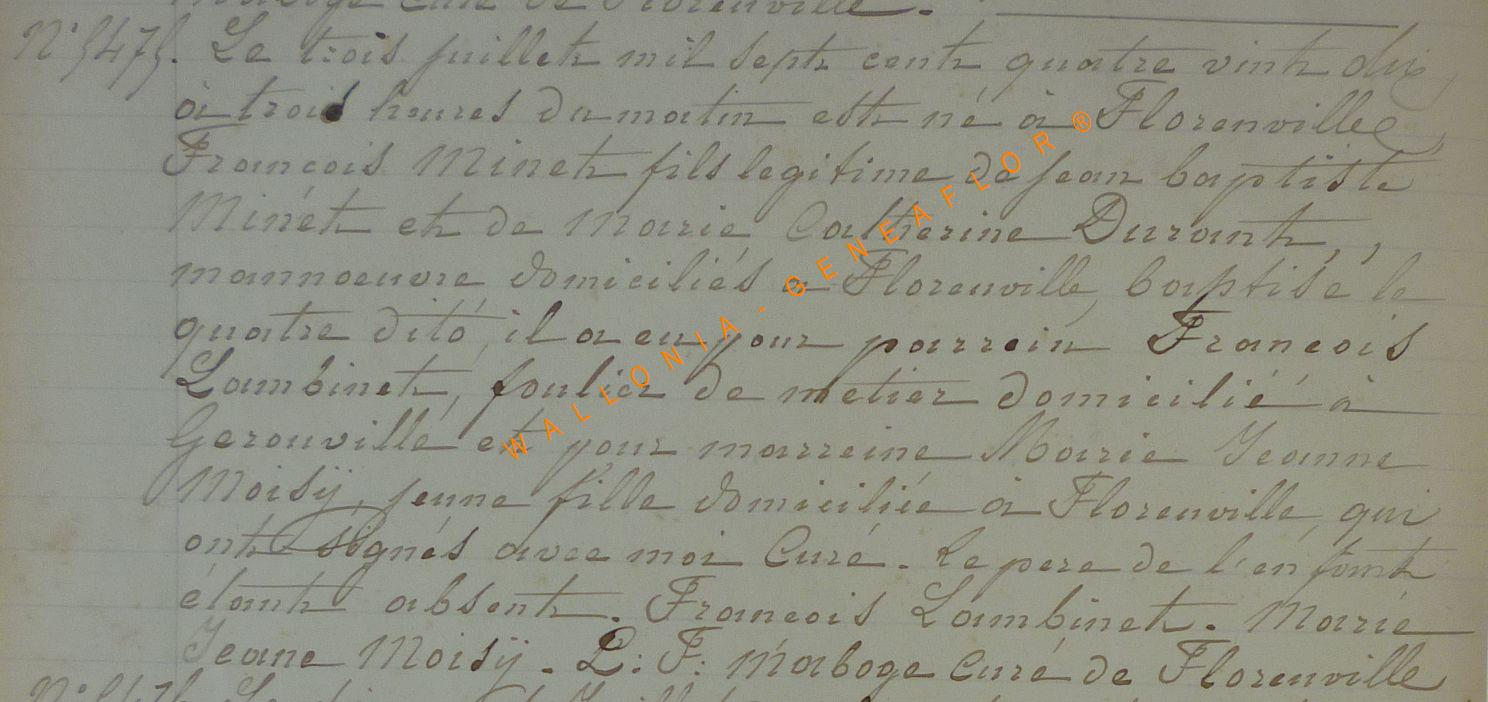 Maboge curé de Florenville.
N° 5475. Le trois juillet mil sept cent quatre vint dix,
à trois heures du matin est né à Florenville,
Francois Minet fils legitime de Jean baptiste
Minet et de Marie Catherine Durant,,
mannoeuvre domiciliés a Florenville, baptisé le
quatre dito, il a eu pour parrein Francois
Lambinet, foulier de metier domicilié à
Gerouville et pour marreine Marie Jeanne
Moisÿ, jeune fille domiciliée à Florenville, qui
ont signés avec moi Curé. Le pere de l'enfant
étant absent. Francois Lambinet. Marie
Jeane Moisÿ. L: F: Maboge Curé de Florenville
WALLONIA - GENEAFLOR ®